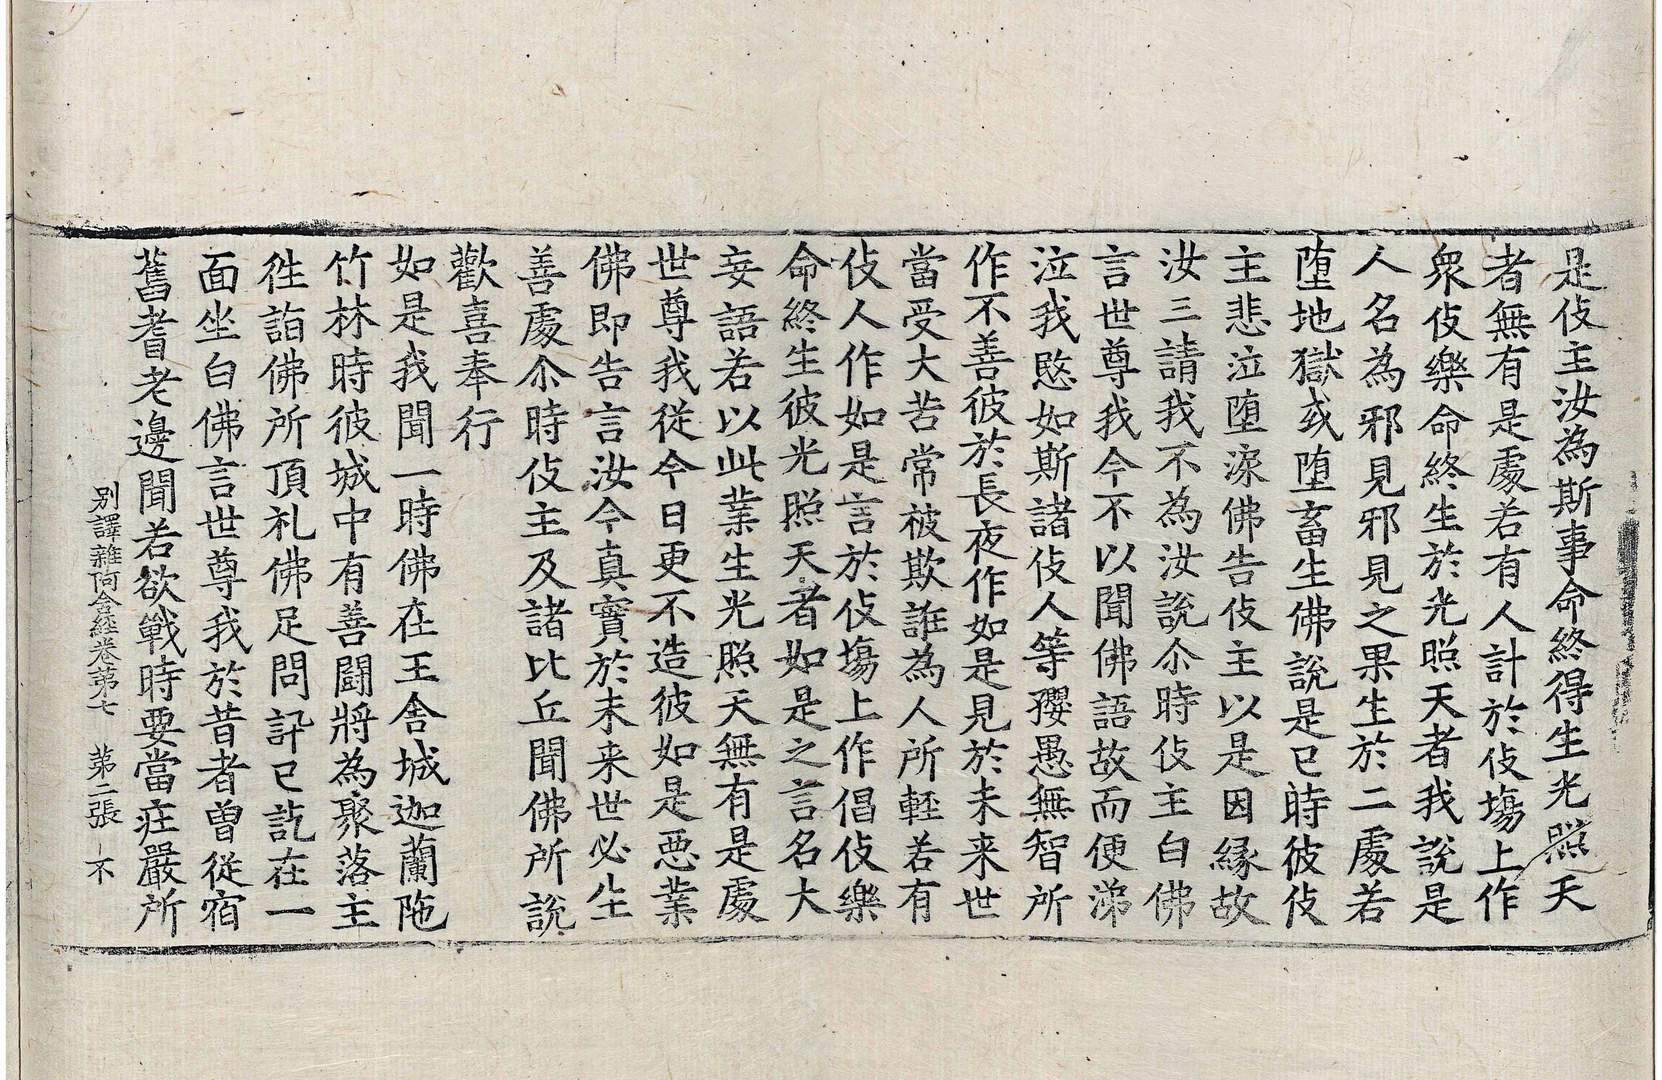 是伎主汝為斯事命終得生光照天
者無有是處若有人計於伎場上作
衆伎樂命終生於光照天者我說是
人名為邪見邪見之果生於二處若
堕地獄或堕畜生佛說是已時彼伎
主悲泣堕淚佛告伎主以是因緣故
汝三請我不為汝說尒時伎主白佛
言世尊我今不以聞佛語故而便涕
泣我愍如斯諸伎人等孾愚無智所
作不善彼於長夜作如是見於未来世
當受大苦常被欺誑為人所輕若有
伎人作如是言於伎場上作倡伎樂
命終生彼光照天者如是之言名大
妄語若以此業生光照天無有是處
世尊我從今日更不造彼如是惡業
佛即告言汝今真實於未来世必生
善處尒時伎主及諸比丘聞佛所說
歡喜奉行
如是我聞一時佛在王舍城迦蘭陁
竹林時彼城中有善闘將為聚落主
徃詣佛所頂礼佛足問訊已訖在一
面坐白佛言世尊我於昔者曽從宿
舊耆老邊聞若欲戰時要當莊嚴所
别譯雜阿含經卷第七 第二張 不